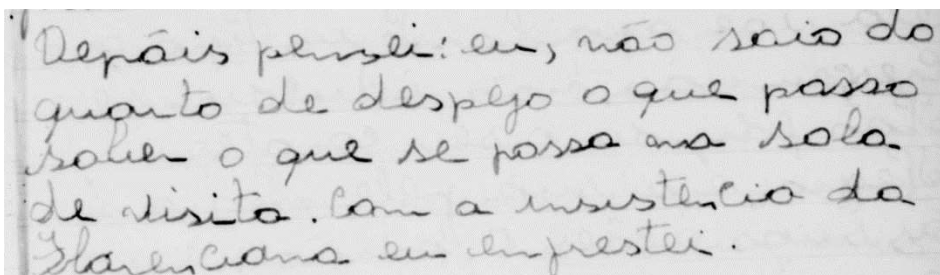 Depóis pensei: eu, não saio do
quarto de despejo o que posso
saber o que se passa na sala
de visita. Com a insistencia da
Florenciana eu emprestei.